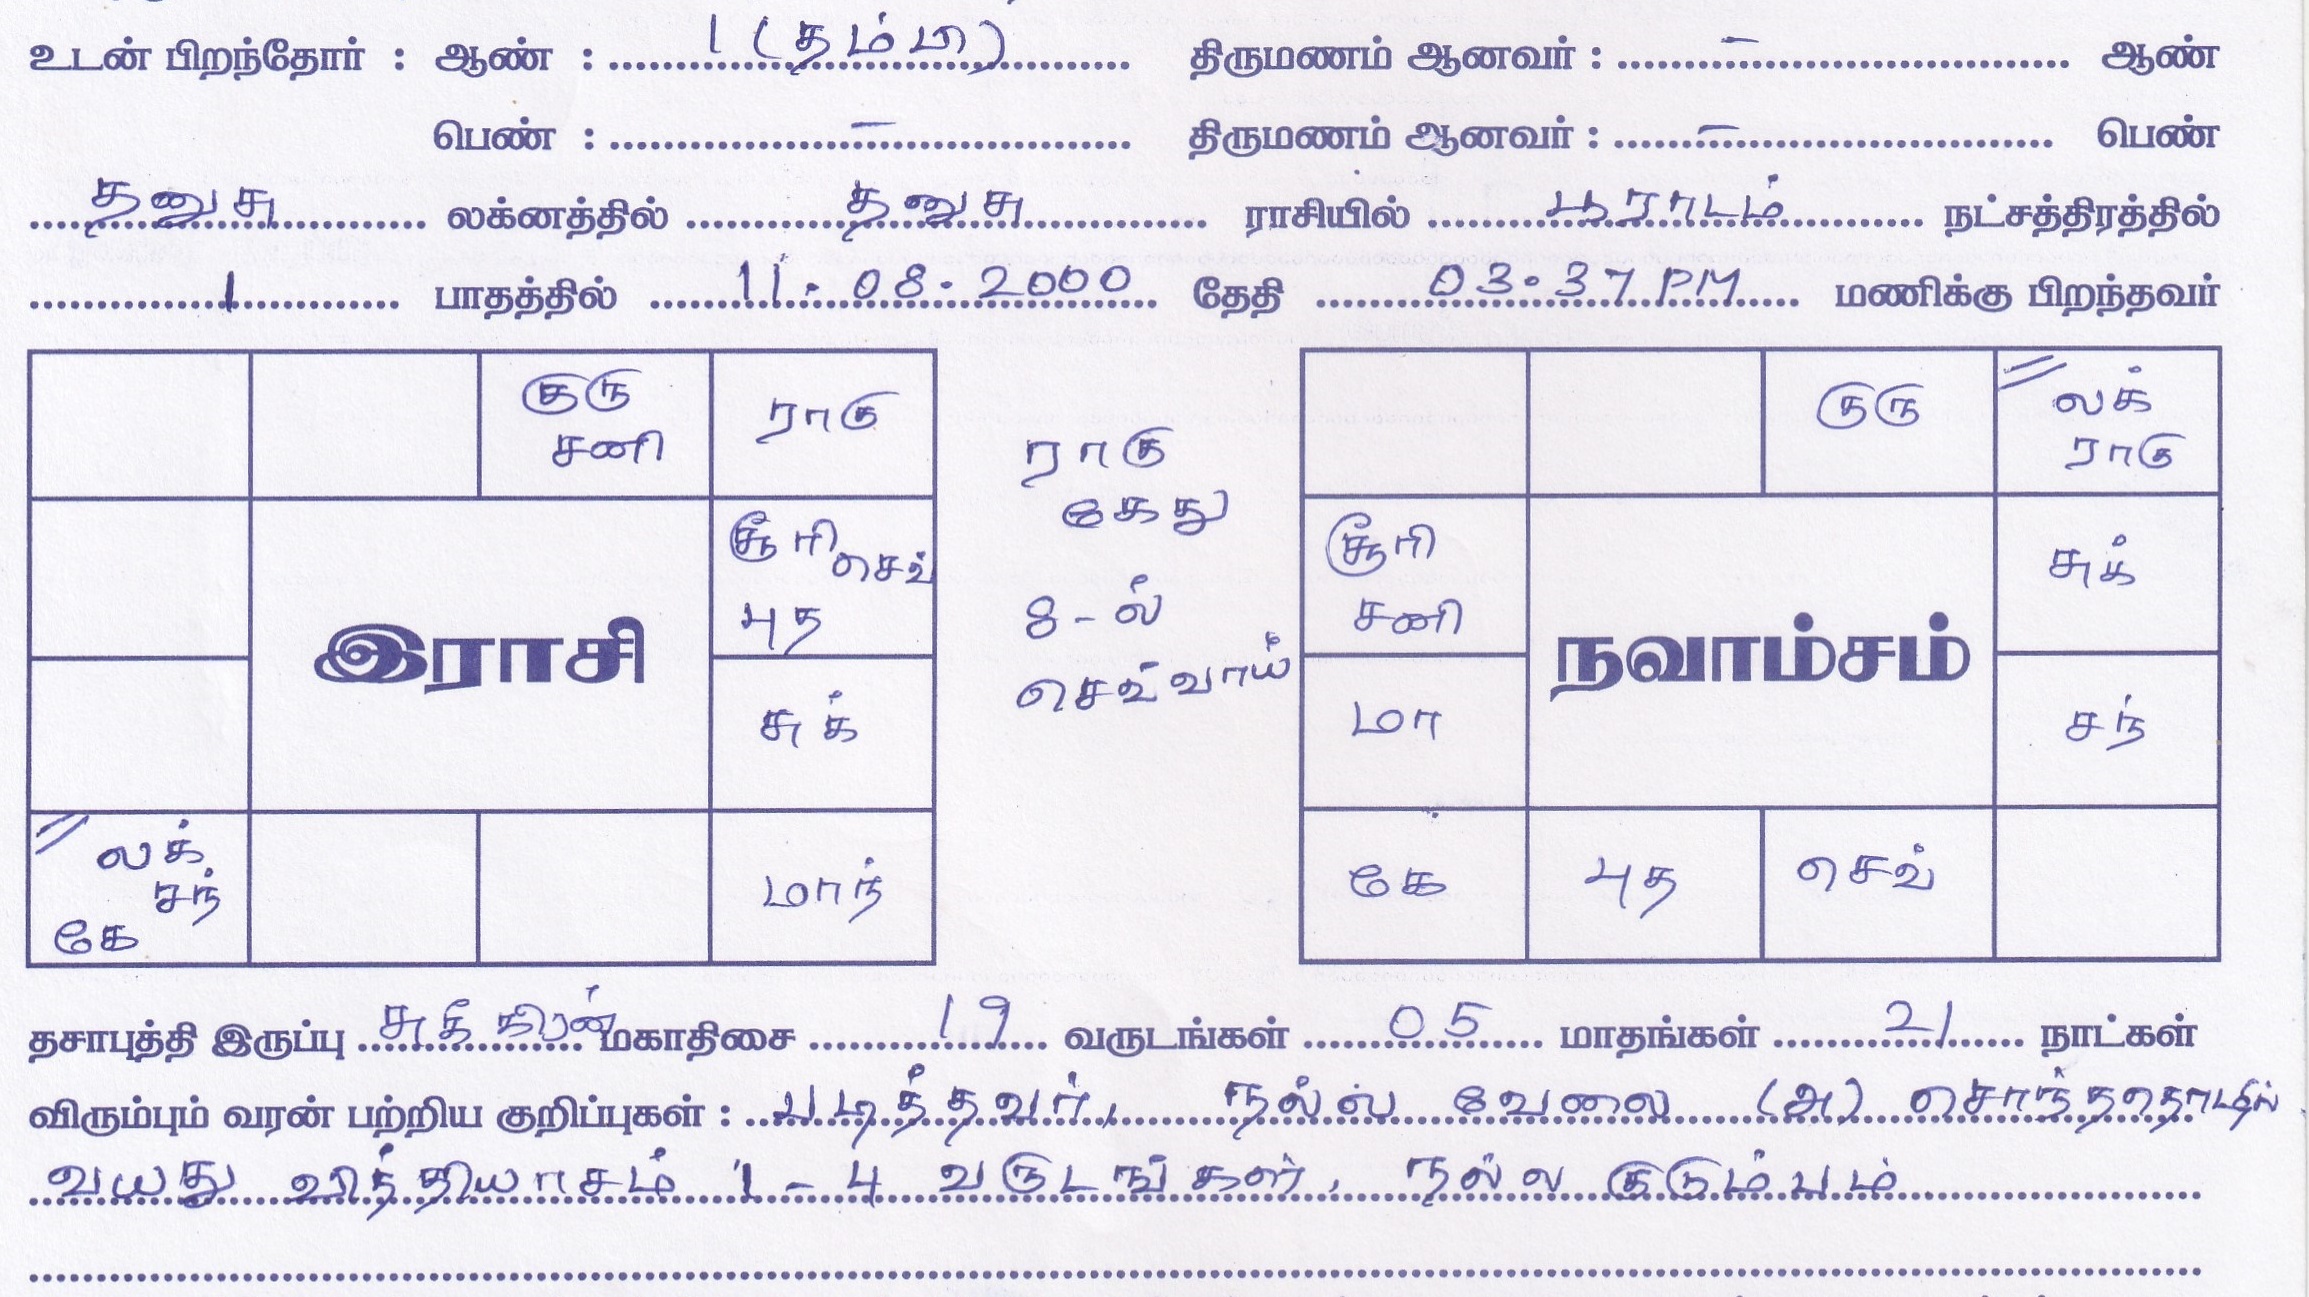 உடன் பிறந்தோர் : ஆண் : 1 (தம்பி) திருமணம் ஆனவர் : – ஆண்
பெண் : – திருமணம் ஆனவர் : – பெண்
தனுசு லக்னத்தில் தனுசு ராசியில் பூராடம் நட்சத்திரத்தில்
1 பாதத்தில் 11.08.2000 தேதி 03.37 PM மணிக்கு பிறந்தவர்
குரு
சனி
ராகு
சூரி
செவ்
புத
இராசி
சுக்
லக்
சந்
கே
மாந்
ராகு
கேது
8-ல்
செவ்வாய்
குரு
லக்
ராகு
சூரி
சனி
சுக்
நவாம்சம்
மா
சந்
கே
புத
செவ்
தசாபுத்தி இருப்பு சுக்கிரன் மகாதிசை 19 வருடங்கள் 05 மாதங்கள் 21 நாட்கள்
விரும்பும் வரன் பற்றிய குறிப்புகள் : படித்தவர், நல்ல வேலை (அ) சொந்ததொழில்
வயது வித்தியாசம் 1 - 4 வருடங்கள், நல்ல குடும்பம்